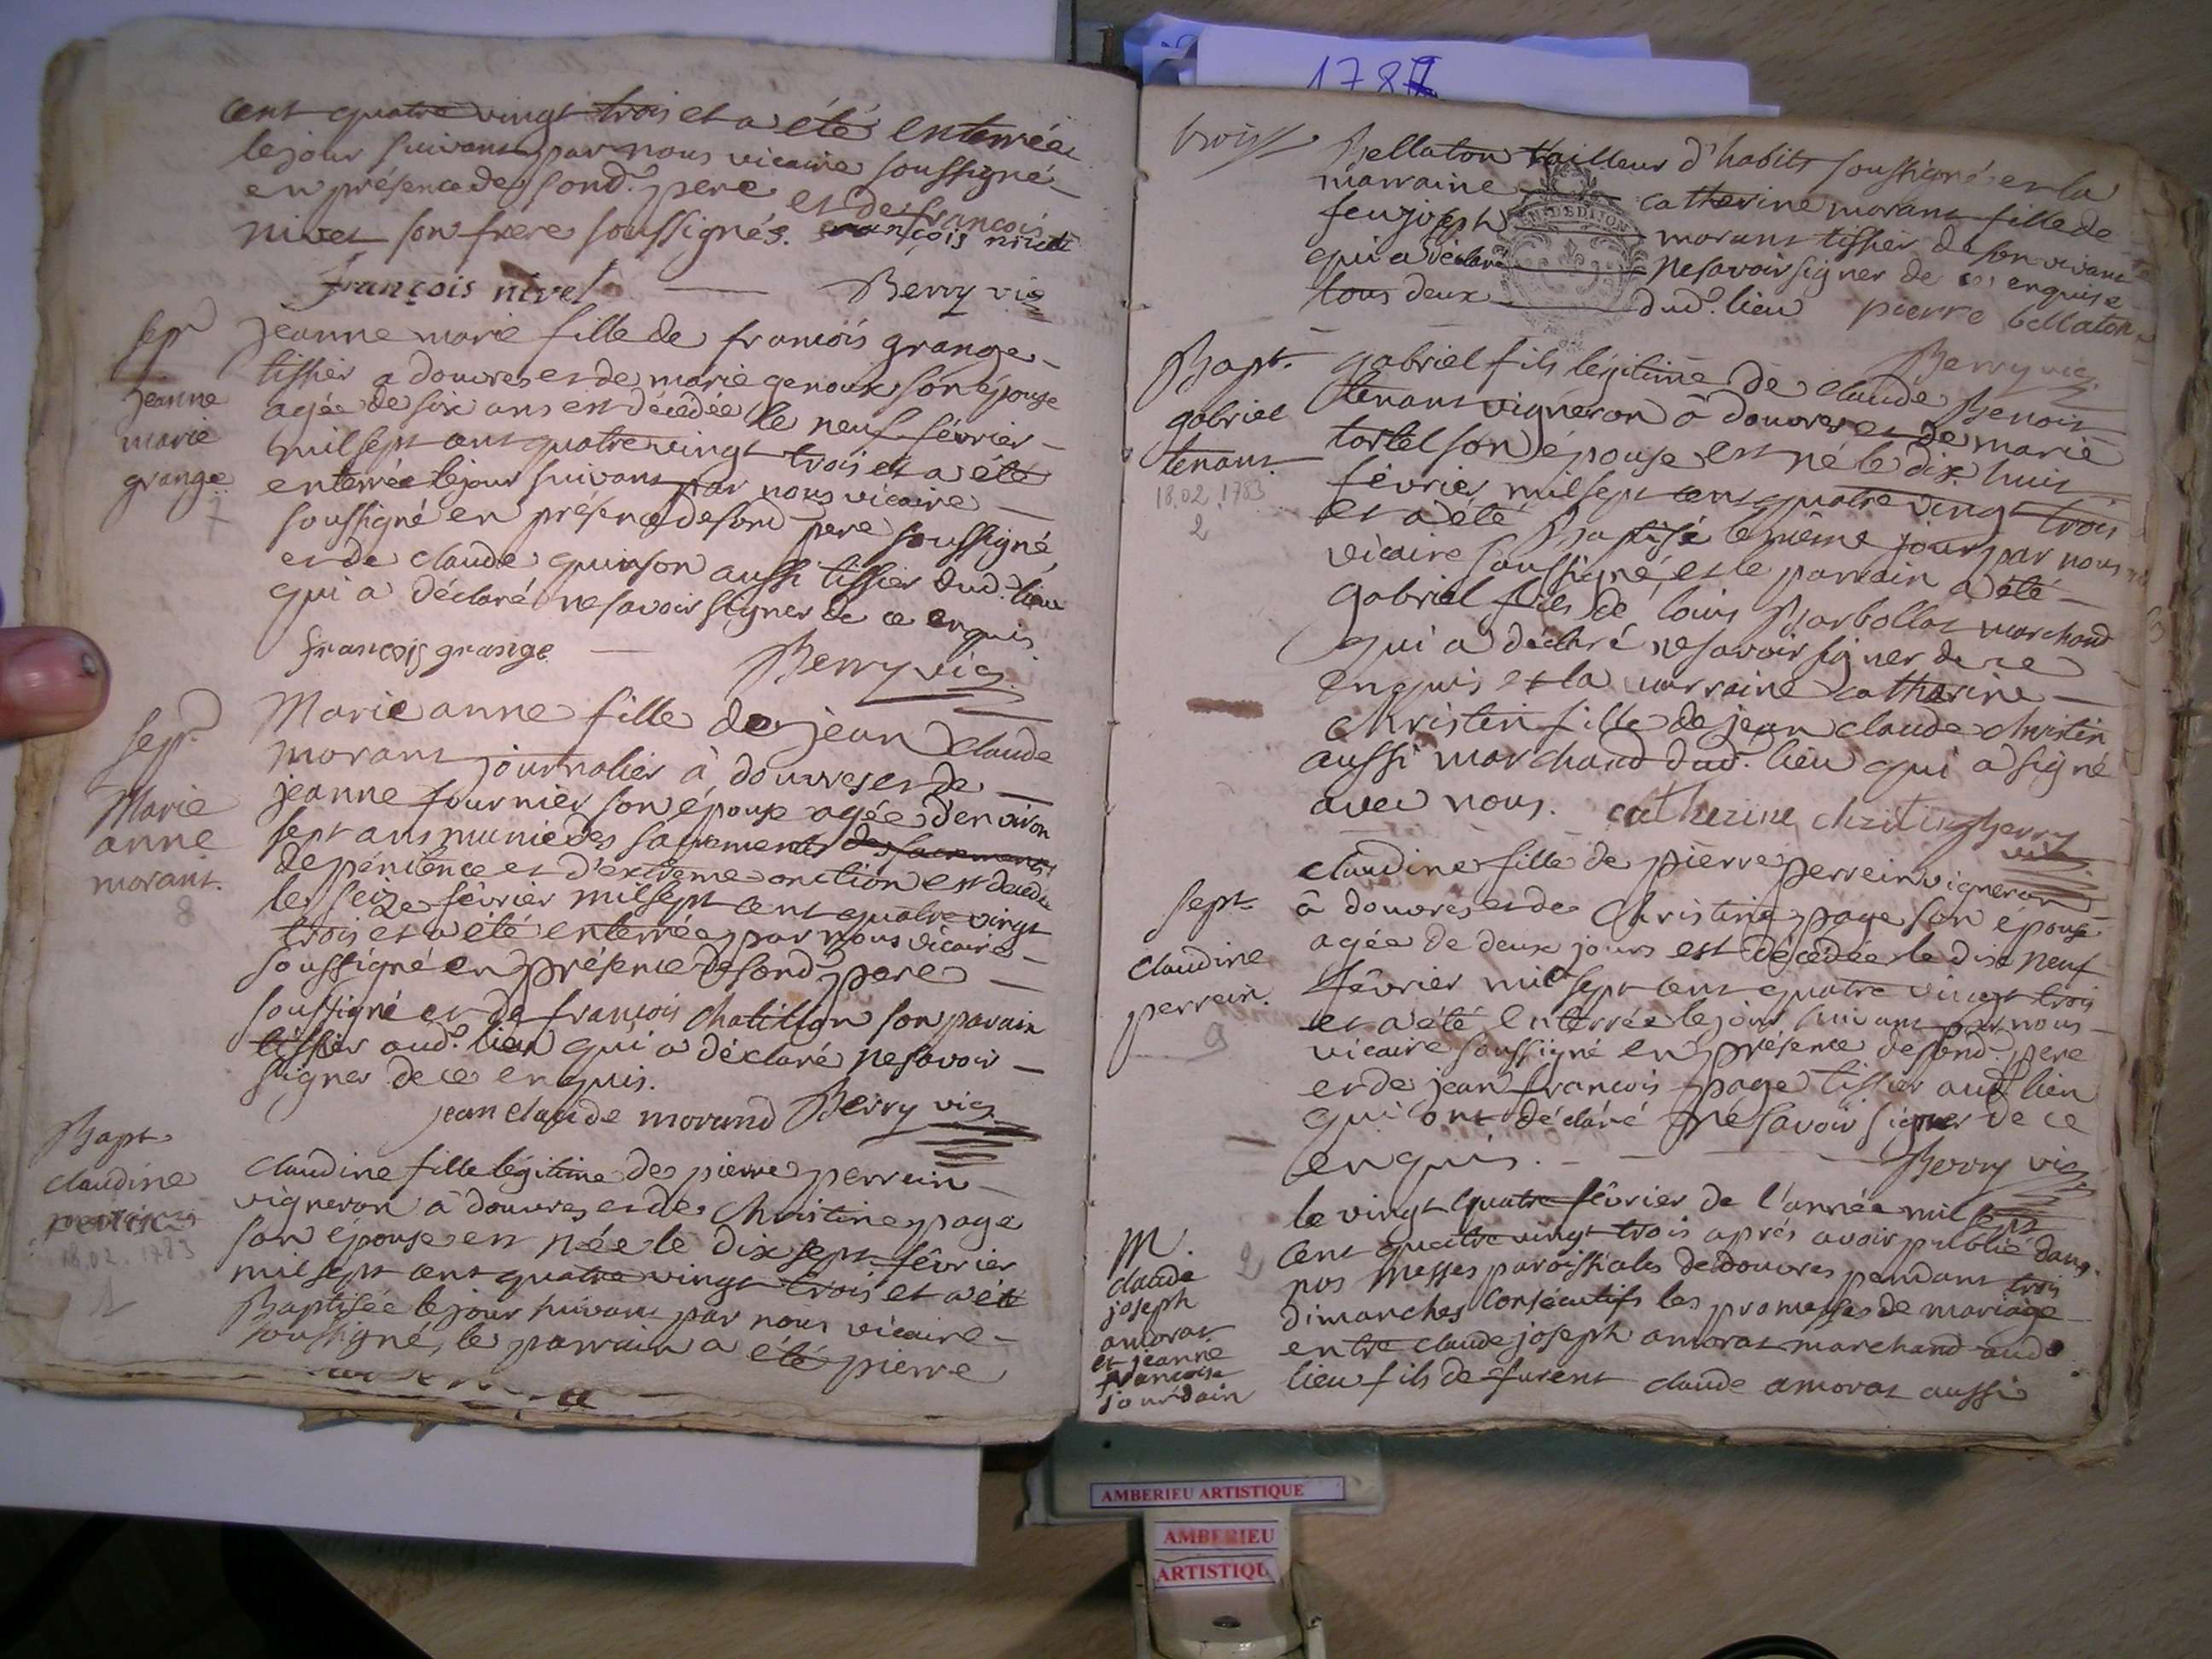 cent quatre vingt trois et a été enterrée
le jour suivant par nous vicaire soussigné
en présence de sond. pere et de françois
nivet son frere soussignés.
françois nivet Berry vic
sep
jeanne
marie
grange
7
jeanne marie fille de francois grange
tissier a douvres et de marie genoux son epouse
agée de six ans est décédée le neuf février
mil sept cent quatre vingt trois et a été
enterrée le jour suivant par nous vicaire
soussigné en présence de sond pere soussigné,
et de claude quinson aussi tissier dud. lieu
qui a déclaré ne savoir signer de ce enquis
francois grange Berry vic.
sep.
Marie
anne
morant.
8
Marie anne fille de jean claude
morant journalier à douvres et de
jeanne fournier son épouse agée d'environ
sept ans munie des sacrements des sacrements
de pénitence et d'extreme onction est décédée
le seize février mil sept cent quatre vingt
trois et a été enterrée par nous vicaire
soussigné en présence de sond pere
soussigné et de francois chatillon son parain
tissier aud. lieu qui a déclaré ne savoir
signer de ce enquis.
jean claude morand Berry vic.
Bapt.
claudine
perrein
18.02.1783
1
claudine fille légitime de pierre perrein
vigneron à douvres et de Christine page
son épouse est née le dix sept février
mil sept cent quatre vingt trois et a été
Baptisée le jour suivant par nous vicaire
soussigné, le parrain a été pierre
1787
trois
Bellaton tailleur d'habits soussigné et la
marraine catherine morant fille de
feu joseph morant tissier de son vivant
qui a déclaré ne savoir signer de ce enquise
tous deux dud. lieu pierre bellaton
Berry vic.
Bapt.
gabriel
tenant.
18.02.1783
2
gabriel fils légitime de claude Benoit
tenant vigneron à douvres et de marie
tortel son épouse est né le dix huit
février mil sept cent quatre vingt trois
et a été Baptisé le même jour par nous
vicaire soussigné, et le parrain a été
gabriel fils de louis Barbollat marchand
qui a déclaré ne savoir signer de ce
enquis et la marraine catherine
christin fille de jean claude christin
aussi marchand dud. lieu qui a signé
avec nous. catherine christin Berry
vic.
sept.
claudine
perrein.
9
claudine fille de pierre perrein vigneron
à douvres et de Christine page son épouse
agée de deux jours est décédée le dix neuf
février mil sept cent quatre vingt trois
et a été enterrée le jour suivant par nous
vicaire soussigné en présence de sond. pere
et de jean francois page tissier aud. lieu
qui ont déclaré ne savoir signer de ce
enquis. Berry vic.
M.
claude
joseph
amorat
et jeanne
francoise
jourdain
2
le vingt quatre février de l'année mil sept
cent quatre vingt trois aprés avoir publié dans
nos Messes paroissiales de douvres pendant trois
dimanches consécutifs les promesses de mariage
entre claude joseph amorat marchand aud.
lieu fils de furent claude amorat aussi
AMBERIEU ARTISTIQUE
AMBERIEU
ARTISTIQU